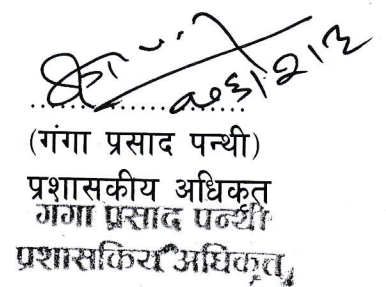 (गंगा प्रसाद पन्थी)
प्रशासकीय अधिकृत
गंगा प्रसाद पन्थी
प्रशासकिय अधिकृत